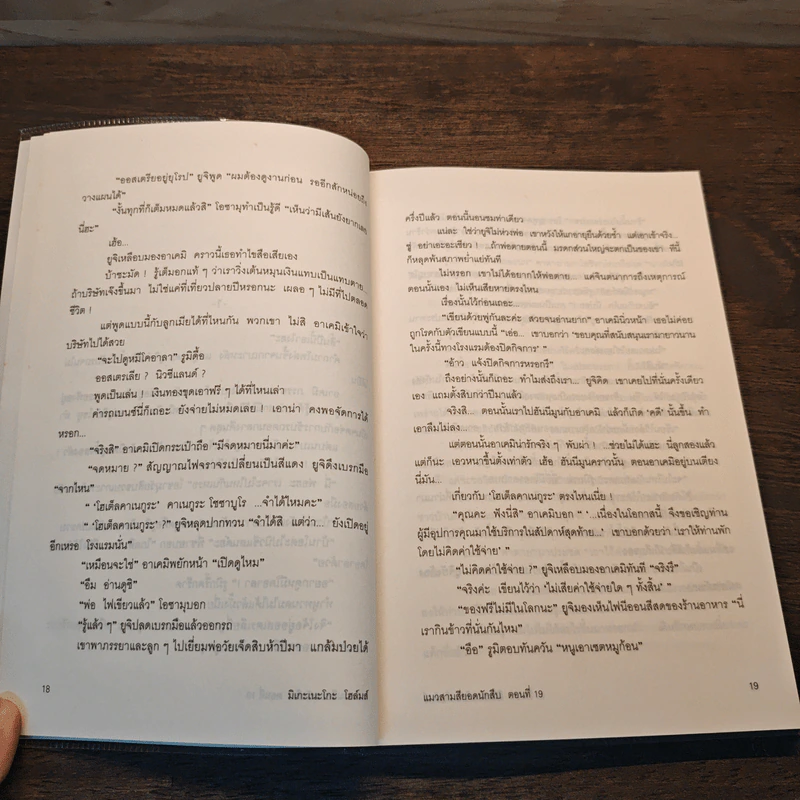 "ออสเตรียอยู่ยุโรป" ยูจิพูด "ผมต้องดูงานก่อน รออีกสักหน่อยถึง
วางแผนได้"
"งั้นทุกที่ก็เต็มหมดแล้วสิ" โอซามุทำเป็นรู้ดี "เห็นว่ามีเส้นยังยากเลย
นี่ฮะ"
เฮ้อ...
ยูจิเหลือบมองอาเคมิ คราวนี้เธอทำไขสือเสียเอง
บ้าชะมัด ! รู้เต็มอกแท้ ๆ ว่าเราวิ่งเต้นหมุนเงินแทบเป็นแทบตาย...
ถ้าบริษัทเจ๊งขึ้นมา ไม่ใช่แค่ที่เที่ยวปลายปีหรอกนะ เผลอ ๆ ไม่มีที่ไปตลอด
ชีวิต !
แต่พูดแบบนี้กับลูกเมียได้ที่ไหนกัน พวกเขา ไม่สิ อาเคมิเข้าใจว่า
บริษัทไปได้สวย
"จะไปดูหมีโคอาลา" รูมิดื้อ
ออสเตรเลีย ? นิวซีแลนด์ ?
พูดเป็นเล่น ! เงินทองขุดเอาฟรี ๆ ได้ที่ไหนเล่า
ค่ารถเบนซ์นี่ก็เถอะ ยังจ่ายไม่หมดเลย ! เอาน่า คงพอจัดการได้
หรอก...
"จริงสิ" อาเคมิเปิดกระเป๋าถือ "มีจดหมายนี่มาค่ะ"
"จดหมาย ?" สัญญาณไฟจราจรเปลี่ยนเป็นสีแดง ยูจิดึงเบรกมือ
"จากไหน"
" 'โฮเต็ลคาเนกูระ' คาเนกูระ โซซาบูโร ...จำได้ไหมคะ"
" 'โฮเต็ลคาเนกูระ' ?" ยูจิหลุดปากทวน "จำได้สิ แต่ว่า... ยังเปิดอยู่
อีกเหรอ โรงแรมนั่น"
"เหมือนจะใช่" อาเคมิพยักหน้า "เปิดดูไหม"
"อืม อ่านดูซิ"
"พ่อ ไฟเขียวแล้ว" โอซามุบอก
"รู้แล้ว ๆ" ยูจิปลดเบรกมือแล้วออกรถ
เขาพาภรรยาและลูก ๆ ไปเยี่ยมพ่อวัยเจ็ดสิบห้าปีมา แกล้มป่วยได้
18
มิเกะเนะโกะ โฮล์มส์
ครึ่งปีแล้ว ตอนนี้นอนซมท่าเดียว
แน่ละ ใช่ว่ายูจิไม่ห่วงพ่อ เขาหวังให้แกอายุยืนด้วยซ้ำ แต่เอาเข้าจริง...
ชู่ อย่าเอะอะเชียว ! ...ถ้าพ่อตายตอนนี้ มรดกส่วนใหญ่จะตกเป็นของเขา ทีนี้
ก็หลุดพ้นสภาพย่ำแย่ทันที
ไม่หรอก เขาไม่ได้อยากให้พ่อตาย... แค่จินตนาการถึงเหตุการณ์
ตอนนั้นเอง ไม่เห็นเสียหายตรงไหน
เรื่องนั้นไว้ก่อนเถอะ...
"เขียนด้วยพู่กันละค่ะ สวยจนอ่านยาก" อาเคมินิ่วหน้า เธอไม่ค่อย
ถูกโรคกับตัวเขียนแบบนี้ "เอ่อ... เขาบอกว่า 'ขอบคุณที่สนับสนุนเรามายาวนาน
ในครั้งนี้ทางโรงแรมต้องปิดกิจการ' "
"อ้าว แจ้งปิดกิจการหรอกรึ"
ถึงอย่างนั้นก็เถอะ ทำไมส่งถึงเรา... ยูจิคิด เขาเคยไปที่นั่นครั้งเดียว
เอง แถมตั้งสิบกว่าปีมาแล้ว
จริงสิ... ตอนนั้นเราไปฮันนีมูนกับอาเคมิ แล้วก็เกิด 'คดี' นั้นขึ้น ทำ
เอาลืมไม่ลง...
แต่ตอนนั้นอาเคมิน่ารักจริง ๆ พับผ่า ! ...ช่วยไม่ได้แฮะ นี่ลูกสองแล้ว
แต่ก็นะ เอวหนาขึ้นตั้งเท่าตัว เฮ้อ ฮันนีมูนคราวนั้น ตอนอาเคมิอยู่บนเตียง
นี่มัน...
เกี่ยวกับ 'โฮเต็ลคาเนกูระ' ตรงไหนเนี่ย !
"คุณคะ ฟังนี่สิ" อาเคมิบอก " '...เนื่องในโอกาสนี้ จึงขอเชิญท่าน
ผู้มีอุปการคุณมาใช้บริการในสัปดาห์สุดท้าย...' เขาบอกด้วยว่า 'เราให้ท่านพัก
โดยไม่คิดค่าใช้จ่าย' "
"ไม่คิดค่าใช้จ่าย ?" ยูจิเหลือบมองอาเคมิทันที "จริงรึ"
"จริงค่ะ เขียนไว้ว่า 'ไม่เสียค่าใช้จ่ายใด ๆ ทั้งสิ้น' "
"ของฟรีไม่มีในโลกนะ" ยูจิมองเห็นไฟนีออนสีสดของร้านอาหาร "นี่
เรากินข้าวที่นั่นกันไหม"
"อือ" รูมิตอบทันควัน "หนูเอาเซตหมูก้อน"
แมวสามสียอดนักสืบ ตอนที่ 19
19